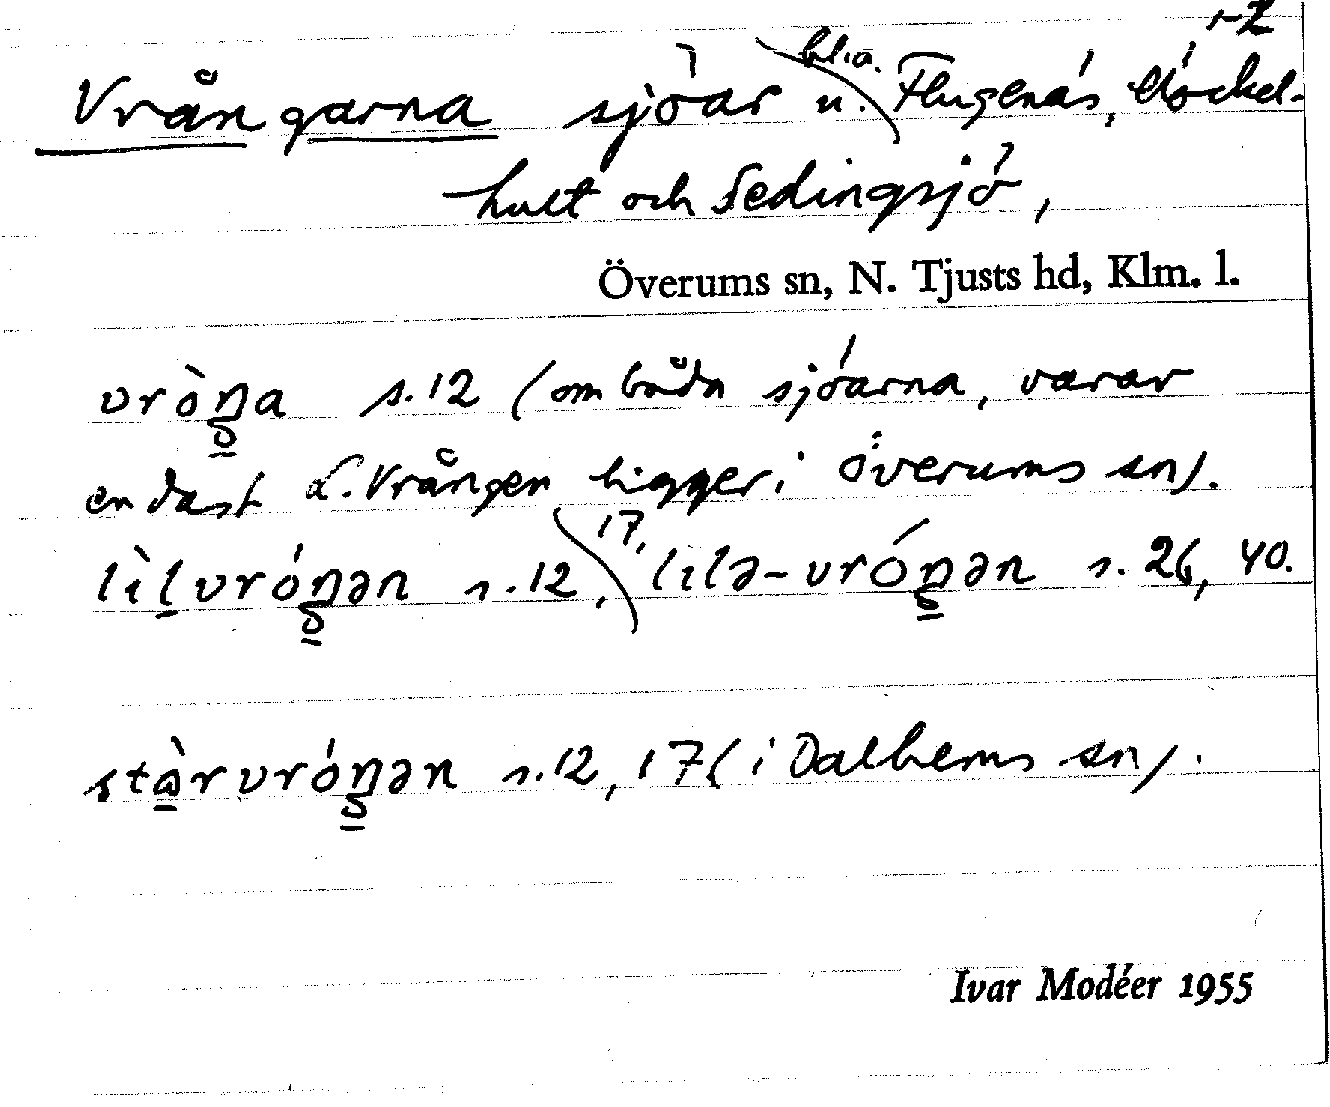 1-2
Vrångarna sjöar u. bl.a. Flugenäs, Klockel-
hult och Sedingsjö,
Överums sn, N. Tjusts hd, Klm. l.
vròŋa s.12 (om båda sjöarna, varav
endast L. Vrången ligger i Överums sn).
lìlvróŋən s.12, 17, lilə-vróŋən s. 26, 40.
stàrvróŋən s.12, 17 (i Dalhems sn).
Ivar Modéer 1955